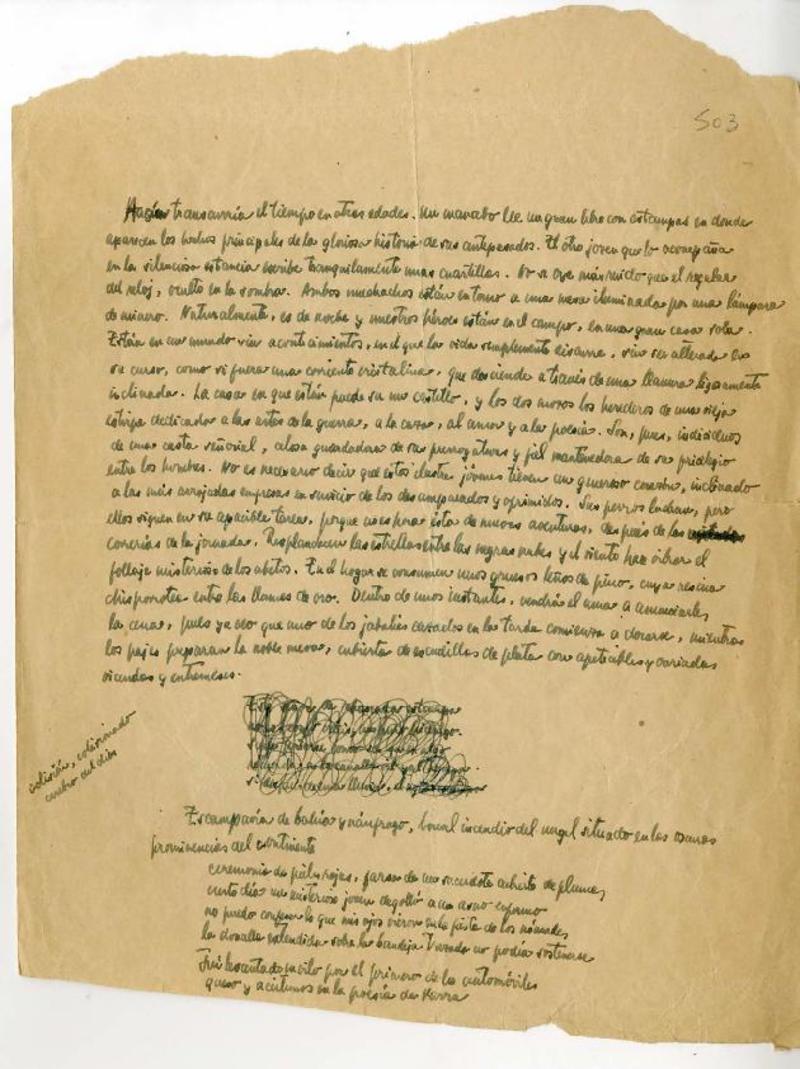 503
transcurría el tiempo en otras edades. Un mancebo lee un gran libro con estampas en donde
aparecen los hechos principales de la gloriosa historia de sus antepasados. El otro joven que lo acompaña
en la silenciosa estancia escribe tranquilamente unas cuartillas. No se oye más ruido que el regular
del reloj, oculto en la sombra. Ambos muchachos están en torno a una mesa iluminada por una lámpara
de minero. Naturalmente, es de noche y nuestros héroes están en el campo, en una gran casa sola.
Están en un mundo sin acontecimientos, en el que la vida simplemente discurre, sin ser alterada en
su curso, como si fuera una corriente cristalina, que desciende a través de una llanura ligeramente
inclinada. La casa en que están puede ser un castillo, y los dos mozos los herederos de una vieja
estirpe dedicada a las artes de la guerra, a la caza, al amor y a la poesía. Son, pues, individuos
de una casta señorial, celosa guardadora de sus prerrogativas y fiel mantenedora de su privilegio
entre los hombres. No es necesario decir que estos ilustres jóvenes tienen un generoso corazón, inclinado
a las más arrojadas empresas en servicio de los desamparados y oprimidos. Sus perros ladran, pero
ellos siguen en su apacible tarea, porque no es hora ésta de nuevas aventuras, después de las
correrías de la jornada. Resplandecen las estrellas entre las negras nubes y el viento hace vibrar el
follaje misterioso de los abetos. En el hogar se consumen unos gruesos leños de pino, cuya resina
chisporrotea entre las llamas de oro. Dentro de unos instantes, vendrá el ama a anunciarles
la cena, pues ya veo que uno de los jabalíes cazados en la tarde comienza a dorarse, mientras
los pajes preparan la noble mesa, cubierta de escudillas de plata con apetecibles y variadas
viandas y entremeses.
colisión, colisionado
cerebro del día
Escampavía de bahía y náufrago, boreal incendio del ángel situado en las oscuras
prominencias del continente
ceremonia de pieles rojas, farsa de un sacerdote cubierto de plumas,
cierto día un misterioso joven degolló a un asno enfermo
no puedo confesar lo que mis ojos vieron en la fiesta de los nómadas,
la doncella extendida sobre la bandeja no podía sostenerse
Fui levantado en vilo por el primero de los automóviles
queso y aceitunas en la poesía de